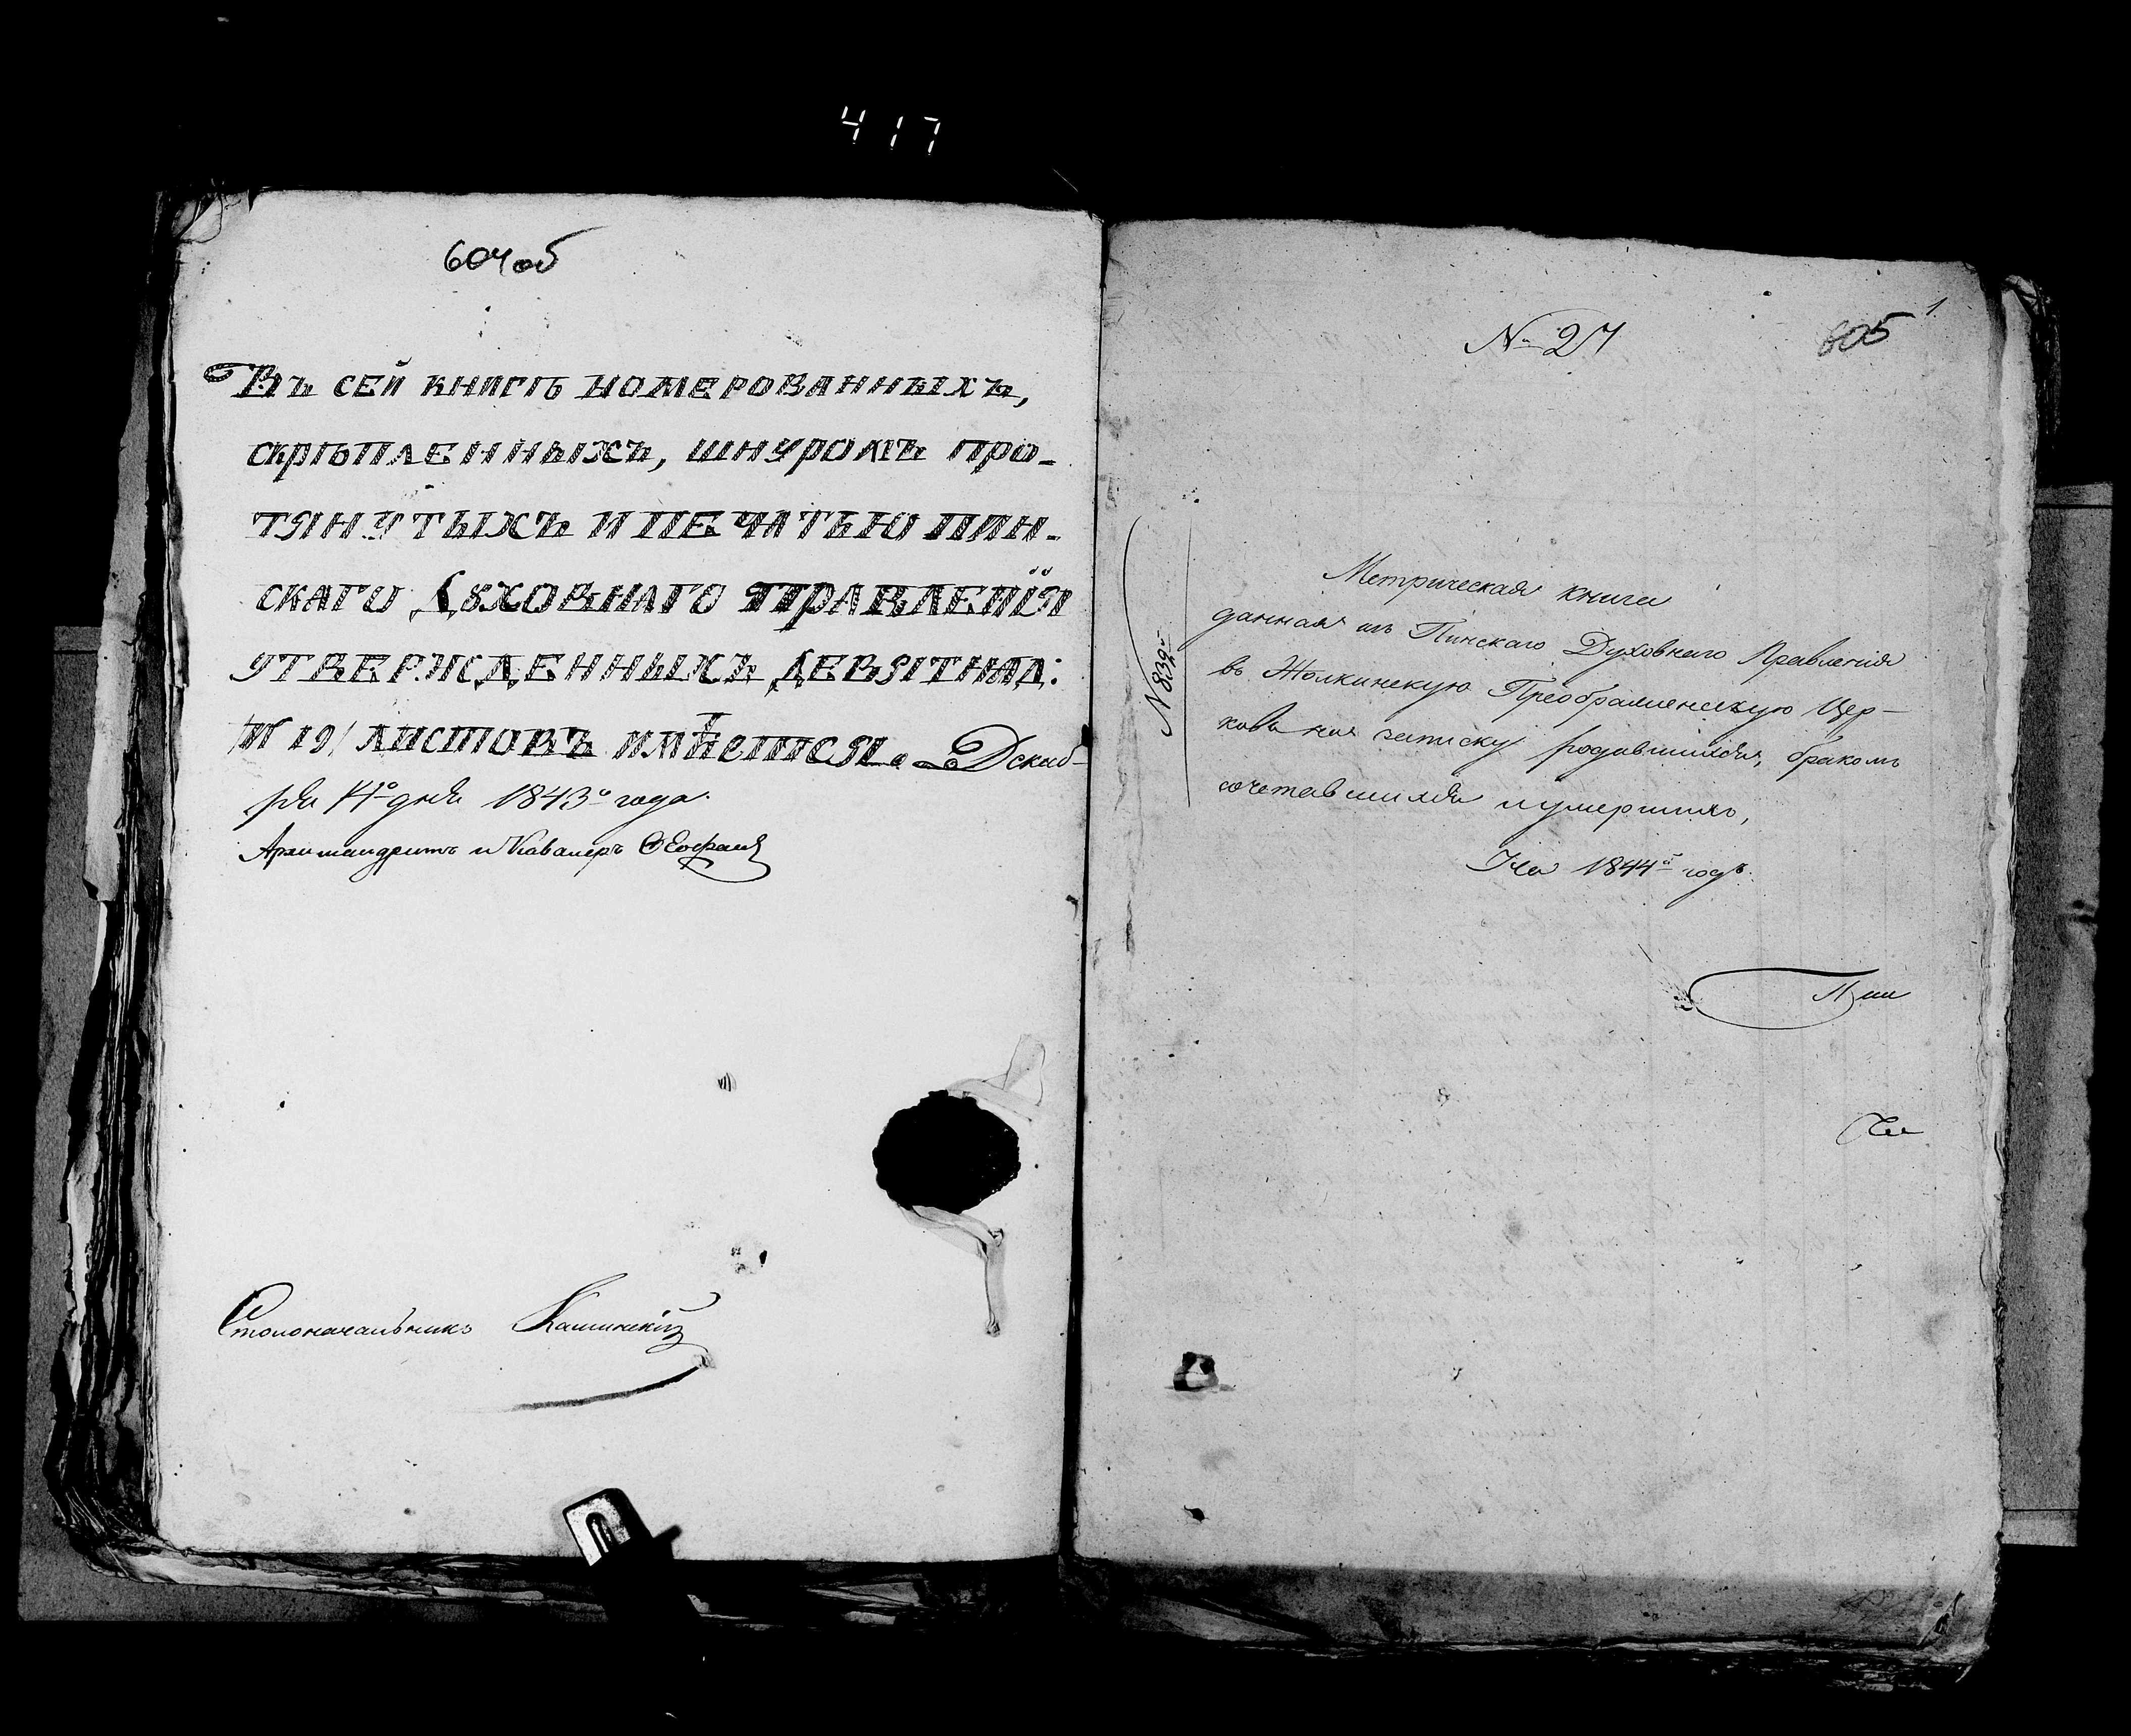 417
604 об
Въ сей книгѣ номерованныхъ,
скрѣпленныхъ, шнуромъ про-
тянутыхъ и печатью Пин-
скаго Духовнаго Правленія
утвержденныхъ девятнад:
/19/ листовъ имѣется. Декаб-
ря 14º дня 1843º года.
Архимандритъ и Кавалеръ
Столоначальникъ
№ 27
605
1
№ 839
Метрическая книга
данная изъ Пинскаго Духовнаго Правленія
въ Жолкинскую Преображенскую Цер-
ковь на записку родившихся, бракомъ
сочетавшихся и умершихъ,
На 1844й годъ.